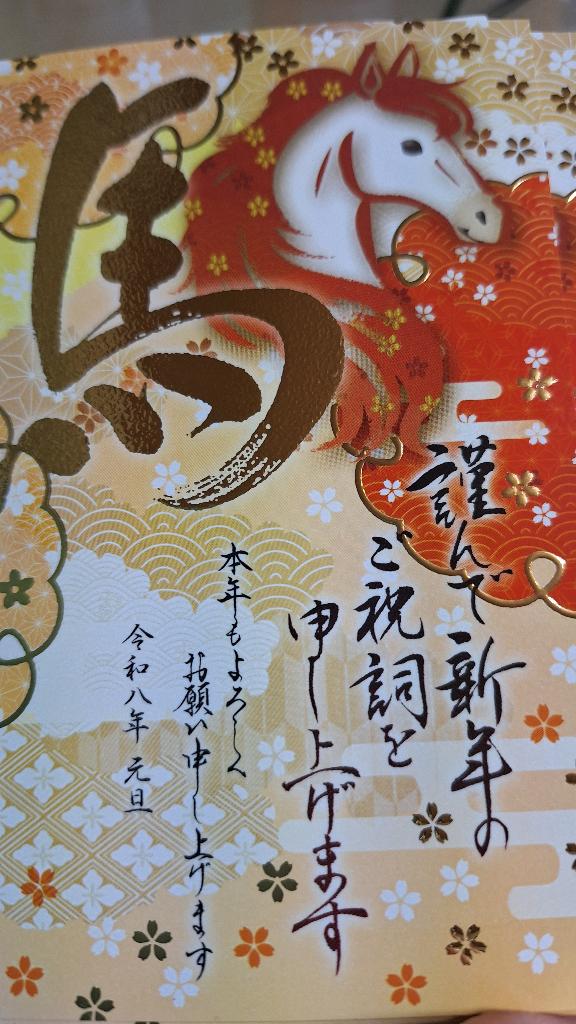 馬
謹んで新年の
ご祝詞を
申し上げます
本年もよろしく
お願い申し上げます
令和八年 元旦